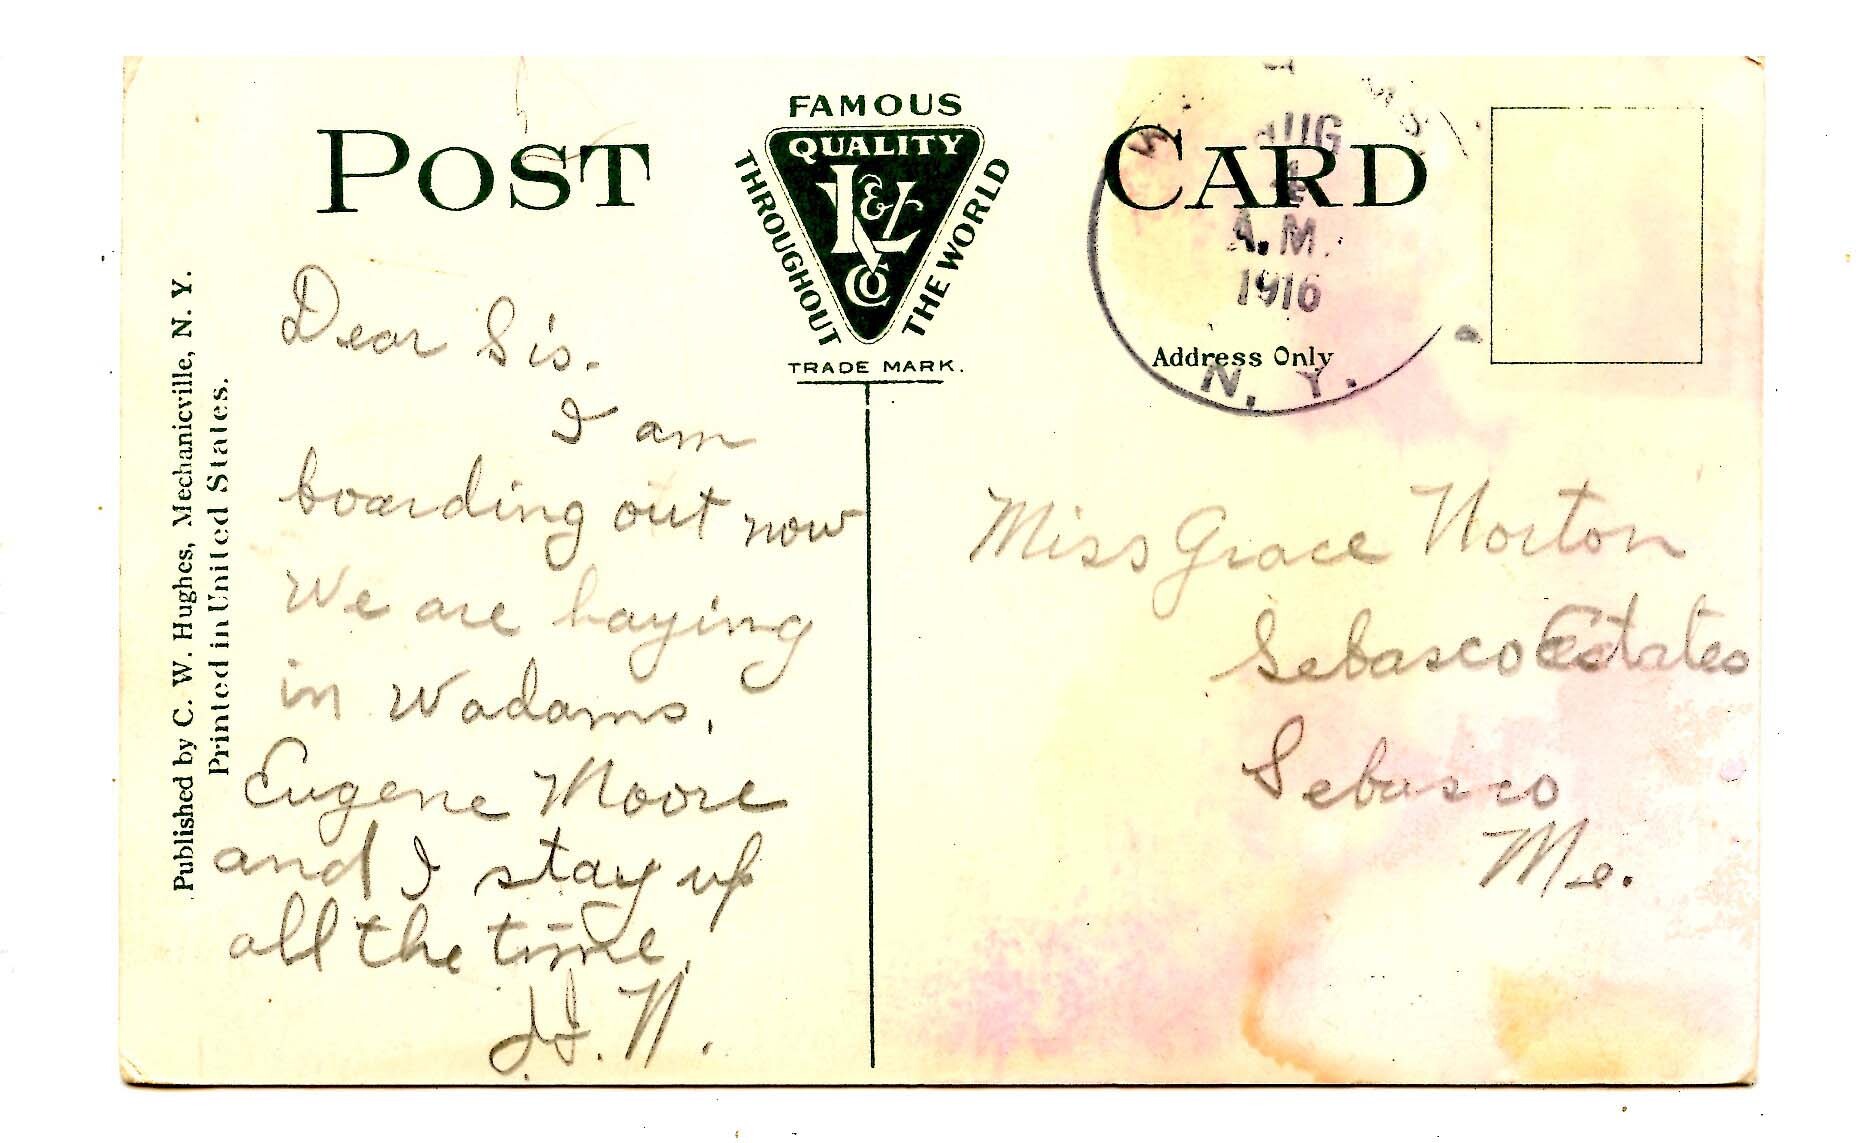 POST CARD
FAMOUS
QUALITY
K & L Co
THROUGHOUT THE WORLD
TRADE MARK.
AUG
A.M.
1916
N. Y.
Address Only
Published by C. W. Hughes, Mechanicville, N. Y.
Printed in United States.
Dear Sis.
I am
boarding out now
We are haying
in Wadams,
Eugene Moore
and I stay up
all the time.
N.
Miss Grace Norton
Sebasco Estates
Sebasco
Me.